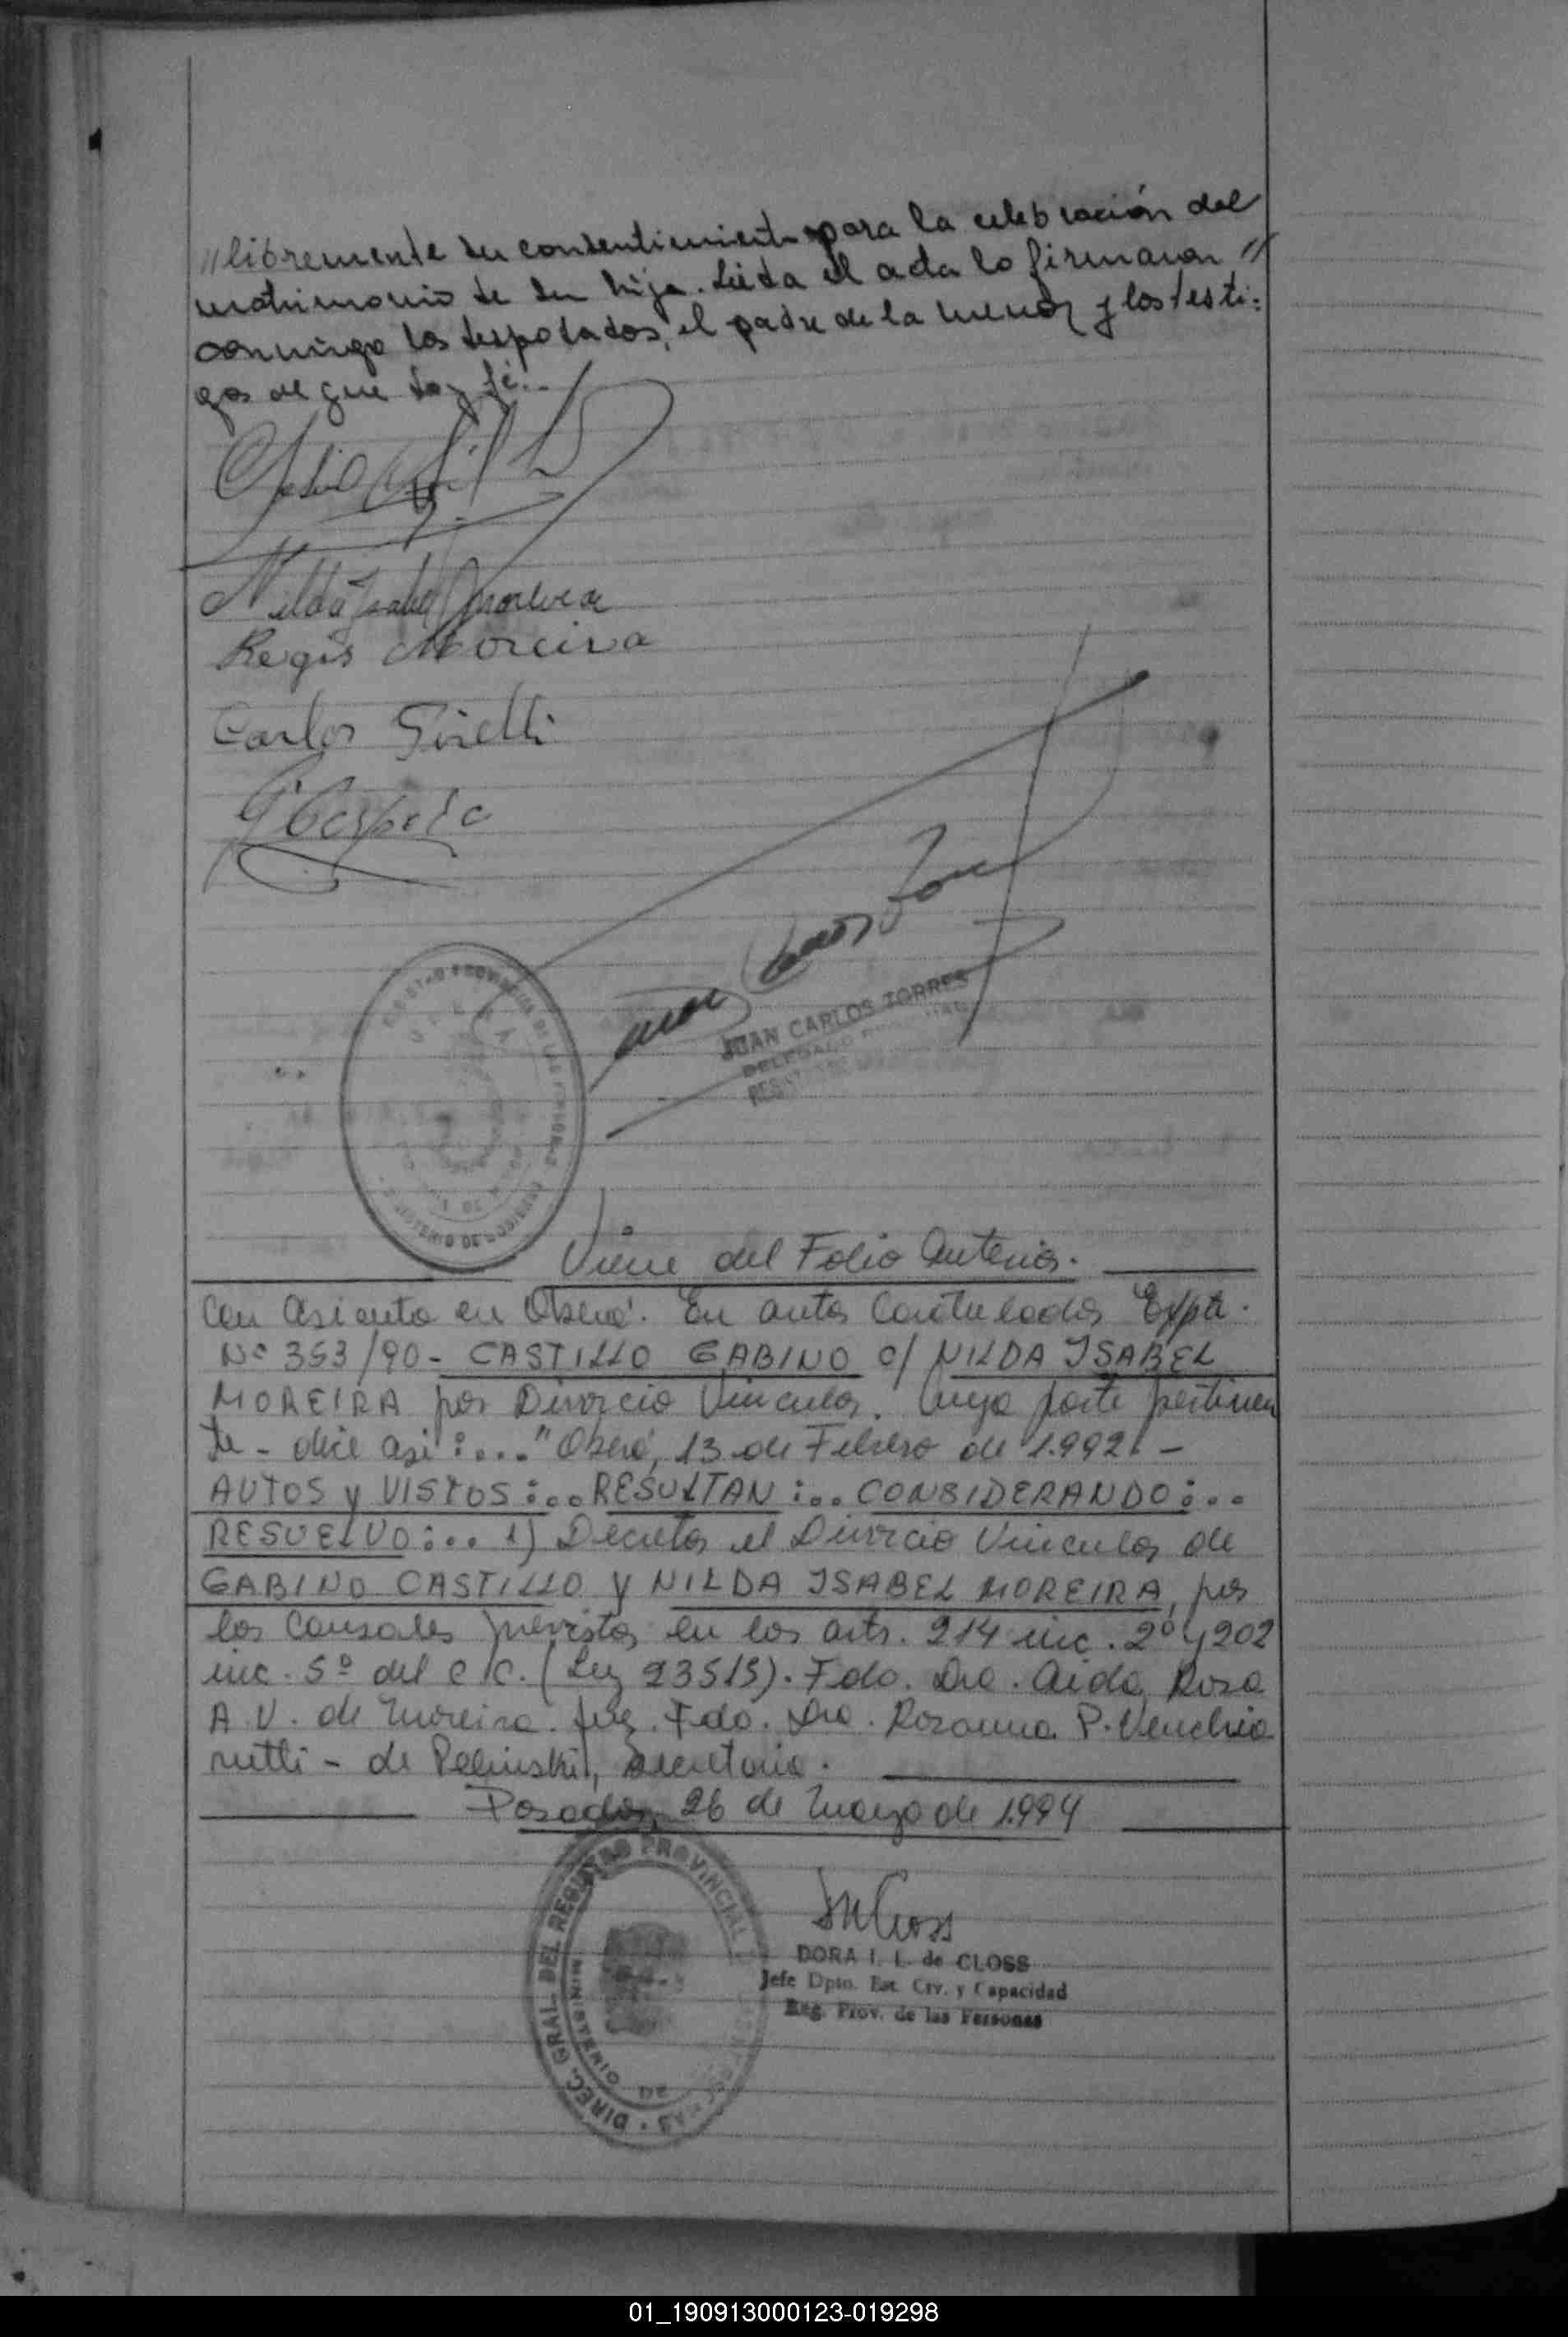 "libremente su consentimiento para la celebración del
matrimonio de su hija. Leída el acta lo firmaron "
conmigo los desposados, el padre de la menor y los testi:
gos de que doy fé.-
Nilda Isabel Moreira
Regis Moreira
Carlos
JUAN CARLOS TORRES
DELEGADO
Viene del Folio Anterior.
Con asiento en Oberá. En autos Caratulados Expte.
Nº 353/90- CASTILLO GABINO c/ NILDA ISABEL
MOREIRA por Divorcio Vincular. Cuya parte pertinen
te - dice asi:... "Oberá, 13 de Febrero de 1.992. -
AUTOS y VISTOS:... RESULTAN:... CONSIDERANDO:...
RESUELVO:... 1) Decretar el Divorcio Vincular de
GABINO CASTILLO y NILDA ISABEL MOREIRA, por
las Causales previstas en los arts. 214 inc. 2º y 202
inc. 5º del C.C. (Ley 23515). Fdo. Dra. Aida Rosa
A. V. de Moreira. Juez. Fdo. Dra. Rosanna P. Venchia
rutti - de Pelinski, Secretaria.
Posadas, 26 de Mayo de 1.994
DIREC. GRAL. DEL REGISTRO PROVINCIAL DE LAS PERSONAS
MINISTERIO DE
DORA I. L. de CLOSS
Jefe Dpto. Est. Civ. y Capacidad
Reg. Prov. de las Personas
01_190913000123-019298